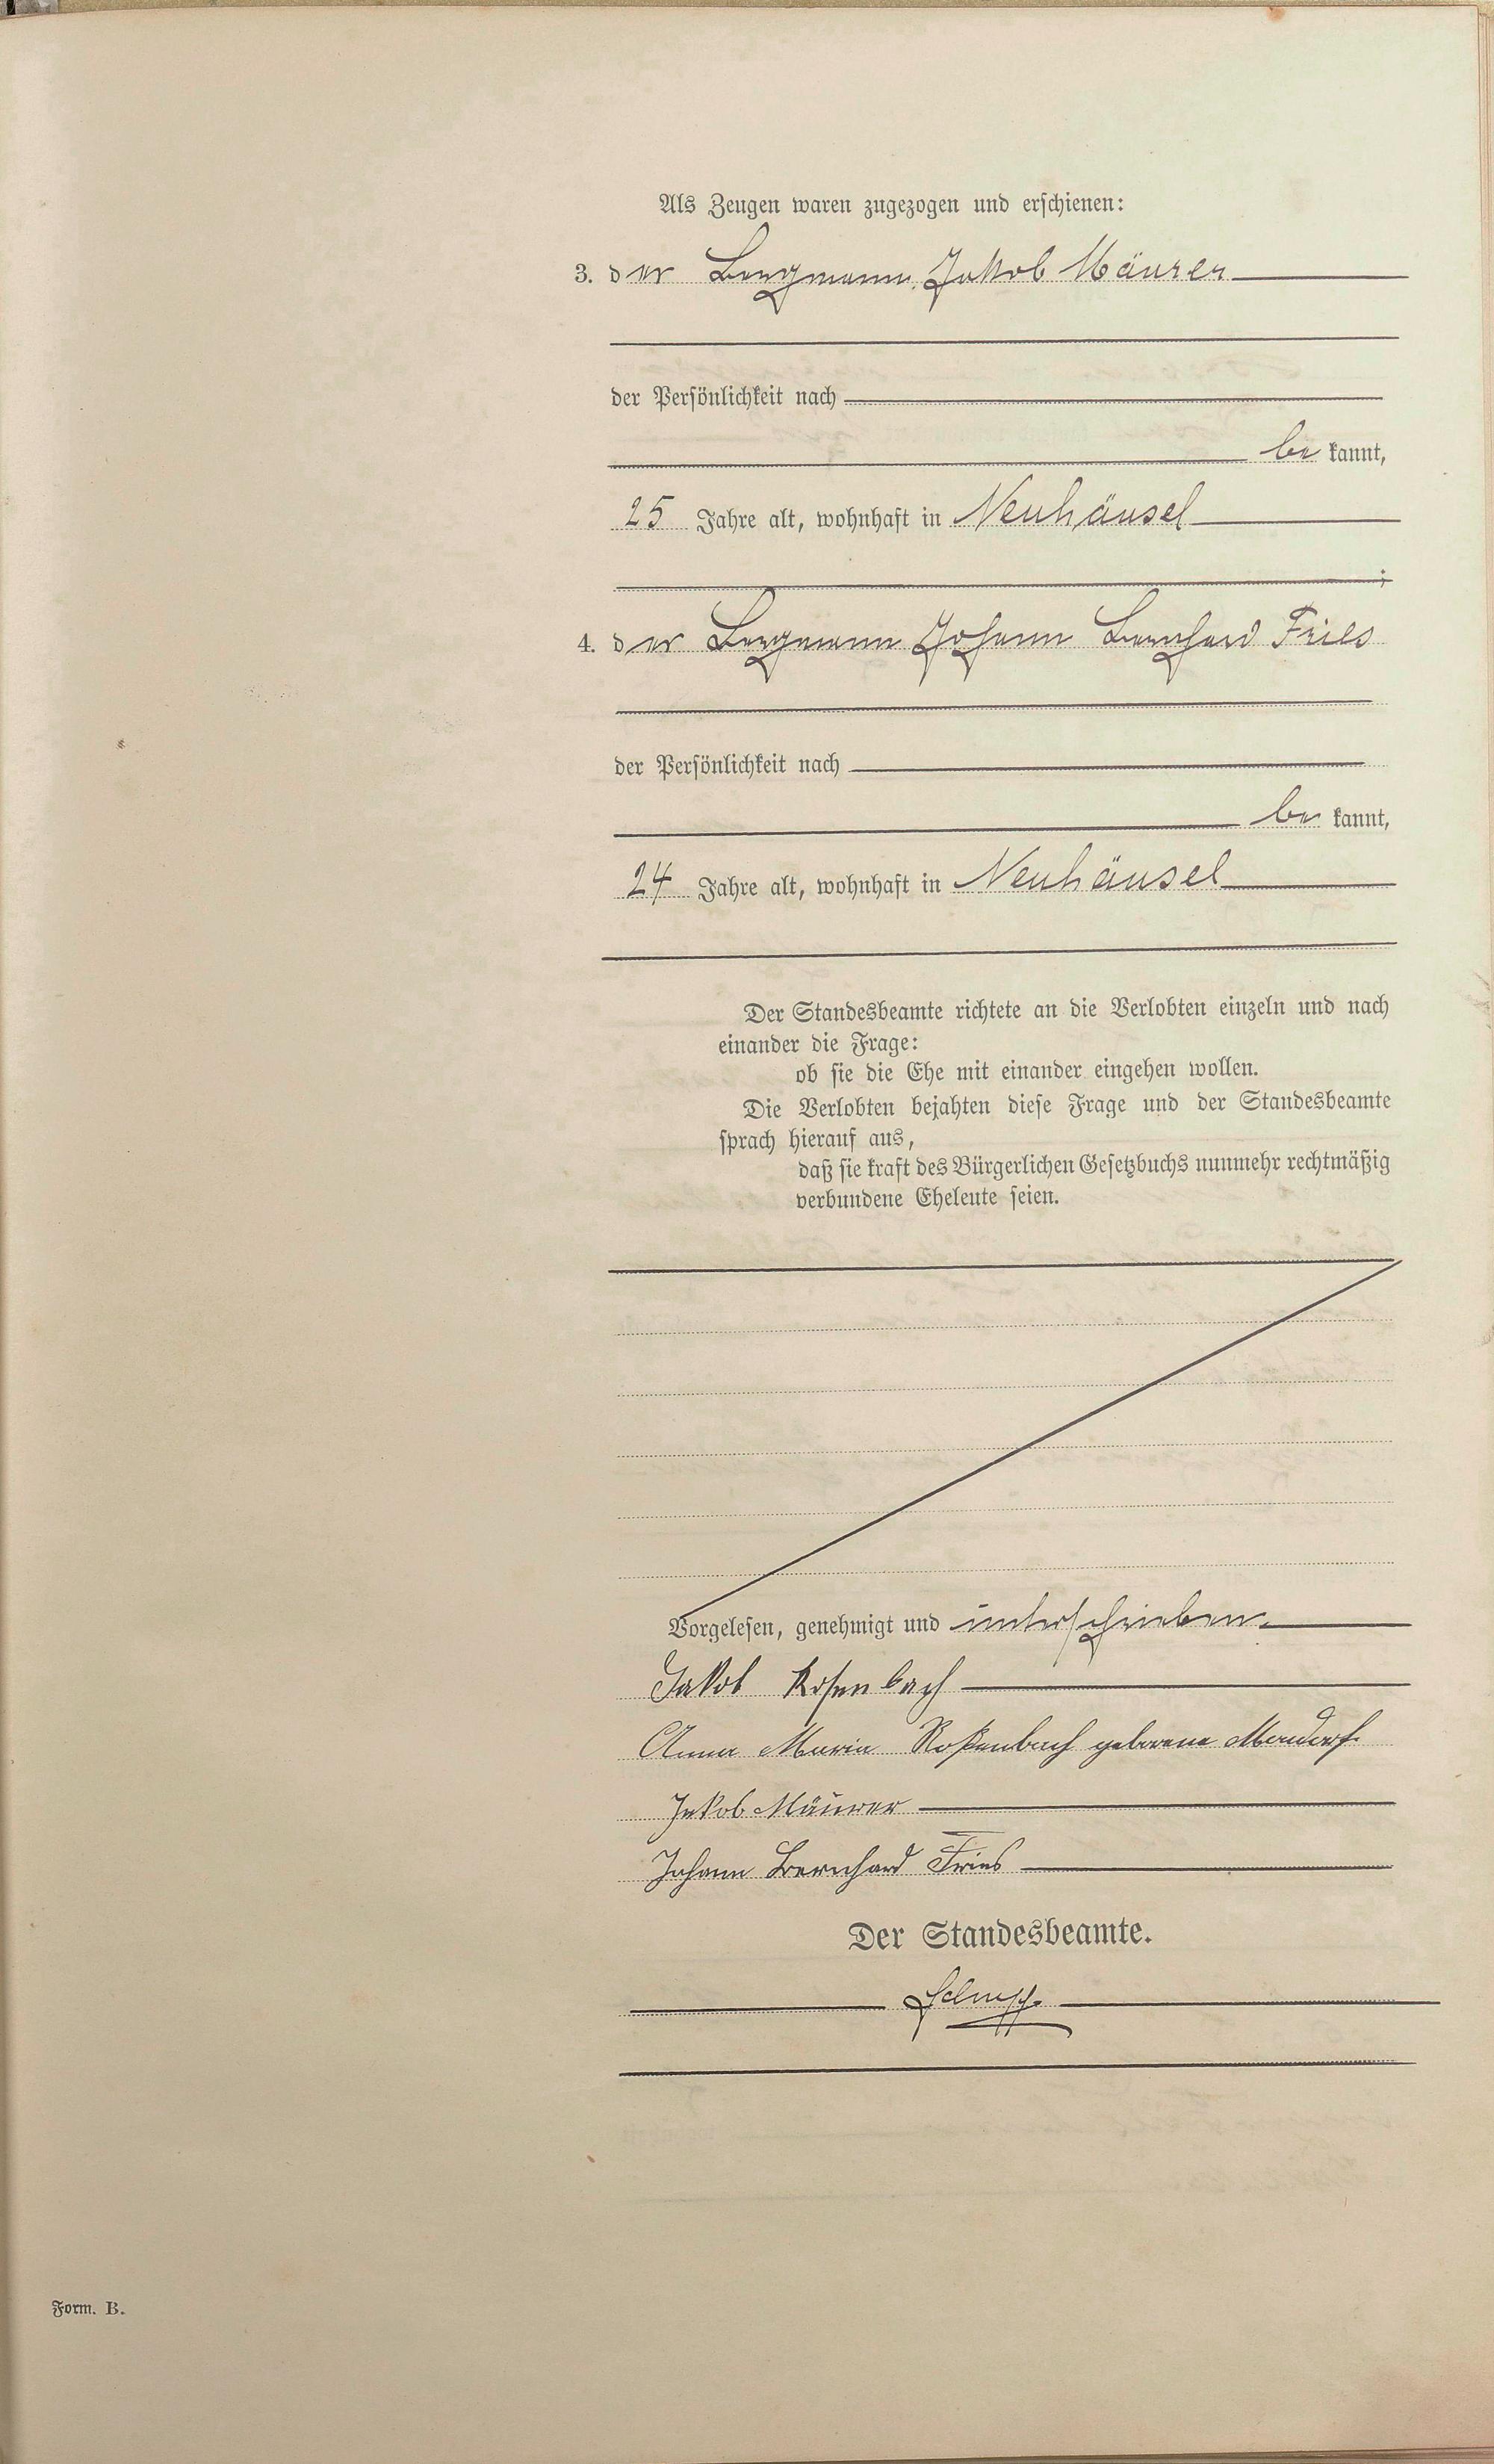 Als Zeugen waren zugezogen und erschienen:
3. der Bergmann Jakob Mäurer
der Persönlichkeit nach
be kannt,
25 Jahre alt, wohnhaft in Neuhäusel
;
4. der Bergmann Johann Bernhard Fries
der Persönlichkeit nach
be kannt,
24 Jahre alt, wohnhaft in Neuhäusel
Der Standesbeamte richtete an die Verlobten einzeln und nach
einander die Frage:
ob sie die Ehe mit einander eingehen wollen.
Die Verlobten bejahten diese Frage und der Standesbeamte
sprach hierauf aus,
daß sie kraft des Bürgerlichen Gesetzbuchs nunmehr rechtmäßig
verbundene Eheleute seien.
Vorgelesen, genehmigt und unterschrieben.
Jakob Rosenbach
Anna Maria Roßenbach geborene
Jakob Mäurer
Johann Bernhard Fries
Der Standesbeamte.
Form. B.